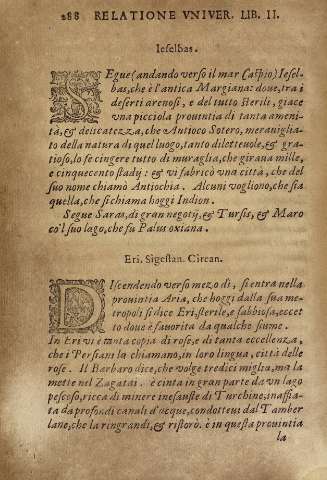 288 RELATIONE VNIVER. LIB. II.
Ieselbas.
SEgue (andando verso il mar Caspio) Iesel-
bas, che è l'antica Margiana: doue, tra i
deserti arenosi, e del tutto sterili, giace
vna picciola prouintia di tanta ameni
tà, & delicatezza, che Antioco Sotero, merauiglia
to della natura di quel luogo, tanto diletteuole, & gra-
tioso, lo fe cingere tutto di muraglia, che giraua mille,
e cinquecento stadij: & vi fabricò vna città, che del
suo nome chiamò Antiochia. Alcuni vogliono, che sia
quella, che si chiama hoggi Indion.
Segue Saras, di gran negotij, & Tursis, & Maro
co'l suo lago, che fu Palus oxiana.
Eri. Sigestan. Cirean.
DIscendendo verso mezo dì, si entra nella
prouintia Aria, che hoggi dalla sua me-
tropoli si dice Eri, sterile, e sabbiosa, eccet
to doue è fauorita da qualche fiume.
In Eri vi è tanta copia di rose, e di tanta eccellenza,
che i Persiani la chiamano, in loro lingua, città delle
rose. Il Barbaro dice, che volge tredici miglia, ma la
mette nel Zagatai. è cinta in gran parte da vn lago
pescoso, ricca di minere inesauste di Turchine, inaffia-
ta da profondi canali d'acque, condotteui dal Tamber
lane, che la ringrandì, & ristorò. è in questa prouintia
la